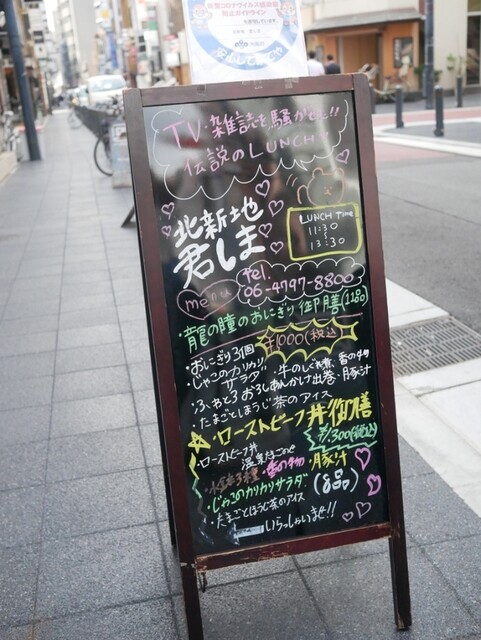 新型コロナウイルス感染症
防止ガイドライン
TV・雑誌を騒がせた!!
伝説のLUNCH
北新地
君しま
LUNCH Time
11:30
13:30
menu
tel.
06-4797-8800
・龍の瞳のおにぎり御膳(12品)
¥1000(税込)
・おにぎり3個
・じゃこのカリカリサラダ
・牛のしぐれ煮
・香の物
・ふわとろおろしあんかけ出巻
・豚汁
・たまごとほうじ茶のアイス
・ローストビーフ丼御膳
¥1300(税込)
(8品)
・ローストビーフ丼
温菜きのこ
・小鉢3種
・香の物
・豚汁
・じゃこのカリカリサラダ
・たまごとほうじ茶のアイス
いらっしゃいませ!!